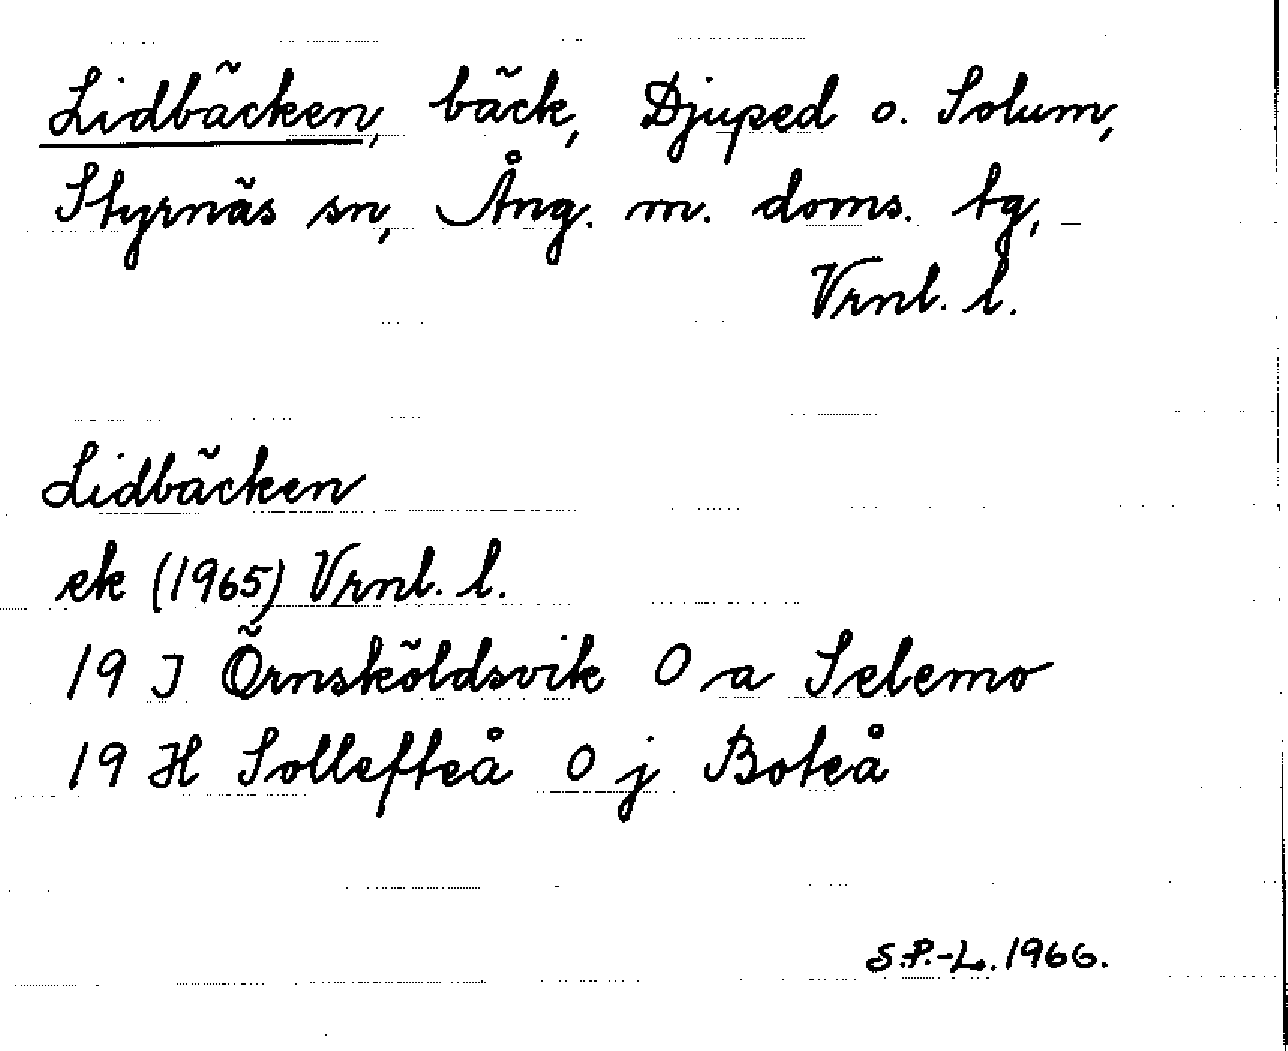 Lidbäcken, bäck, Djuped o. Solum,
Styrnäs sn, Ång. m. doms. tg,
Vrnl. l.
Lidbäcken
ek (1965) Vrnl. l.
19 J Örnsköldsvik 0 a Selemo
19 H Sollefteå 0 j Boteå
S.P.-L. 1966.